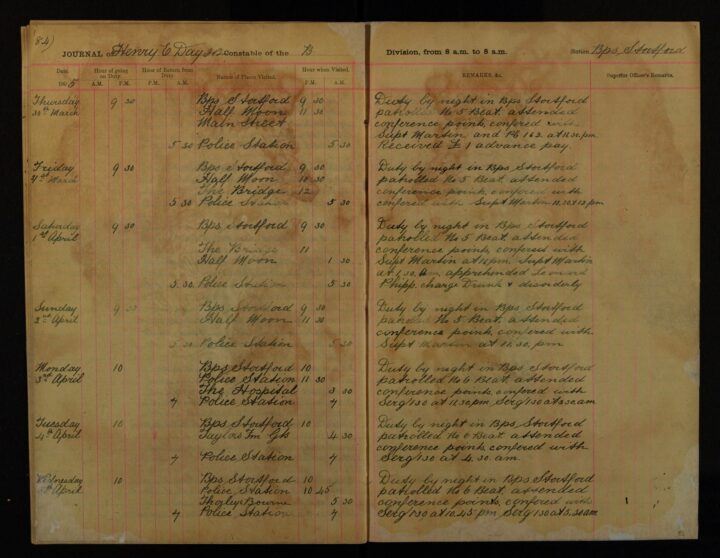 84)
JOURNAL of Henry E Day 312 Constable of the B
Division, from 8 a.m. to 8 a.m. Station Bps Stortford
Date. Hour of going on Duty. Hour of Return from Duty. Nature of Place Visited. Hour when Visited.
REMARKS, &c. Superior Officer's Remarks.
1905 A.M. P.M. P.M. A.M. P.M. A.M.
Thursday 9 30 Bps Stortford 9 30
30th March Half Moon 11 30
Main Street
5 30 Police Station 5 30
Duty by night in Bps Stortford
patrolled No 5 Beat, attended
conference points, confered with
Supt Martin and PC 162 at 11.30 pm
Received £1 advance pay.
Friday 9 30 Bps Stortford 9 30
March Half Moon 10 30
The Bridge 12
5 30 Police Station 5 30
Duty by night in Bps Stortford
patrolled No 5 Beat attended
conference points, confered with
confered with Supt Martin
Saturday 9 30 Bps Stortford 9 30
1st April
The Bridge 11
Half Moon 1 30
5 30 Police Station 5 30
Duty by night in Bps Stortford
patrolled No 5 Beat, attended
conference points, confered with
Supt Martin at 11 pm. Supt Martin
at 1.30 am apprehended Leonard
Phipp. charge Drunk & disorderly
Sunday 9 30 Bps Stortford 9 30
2nd April Half Moon 11 30
5 30 Police Station 5 30
Duty by night in Bps Stortford
patrolled No 5 Beat, attended
conference points, confered with
Supt Martin at 11.30 pm
Monday 10 Bps Stortford 10
3rd April Police Station 11 30
The Hospital 3 30
7 Police Station 7
Duty by night in Bps Stortford
patrolled No 6 Beat attended
conference points, confered with
Serg 130 at 11.30pm Serg 130 at 3.30am
Tuesday 10 Bps Stortford 10
4th April Taylors Fm Gts 4 30
7 Police Station 7
Duty by night in Bps Stortford
patrolled No 6 Beat, attended
conference points, confered with
Serg 130 at 4.30 am
Wednesday 10 Bps Stortford 10
5th April Police Station 10 45
Thorley Bourne 5 30
7 Police Station 7
Duty by night in Bps Stortford
patrolled No 6 Beat, attended
conference points, confered with
Serg 130 at 10.45 pm Serg 130 at 5.30am